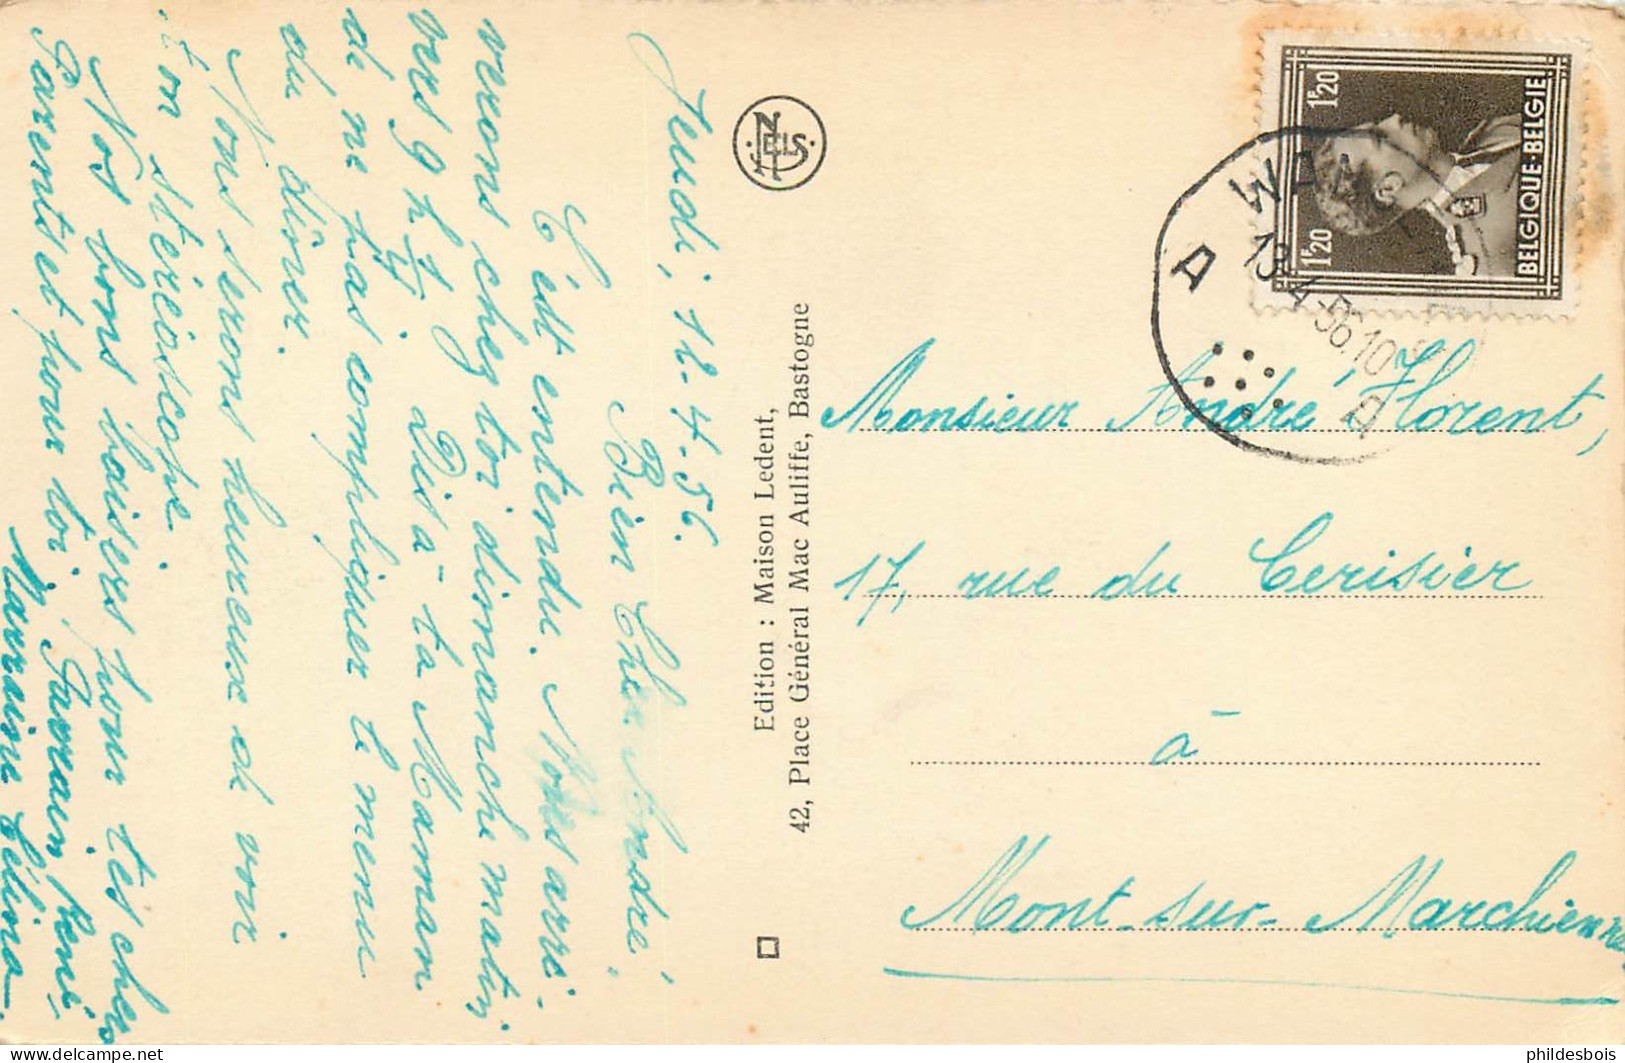 Jeudi, 12-4-56.
Bien Cher André,
C'est entendu. Nous arri-
verons chez toi dimanche matin
vers 9 h 1/4. Dis à ta Maman
de ne pas compliquer le menu
du dîner.
Nous serons heureux de voir
ton stéréoscope.
Nos bons baisers pour tes chers
Parents et pour toi, Parrain René,
Marraine Célina.
NELS
Edition : Maison Ledent,
42, Place Général Mac Auliffe, Bastogne
1F20
1F20
BELGIQUE-BELGIE
13-4-56.10
A
A
Monsieur André Florent,
17, rue du Cerisier
à
Mont-sur-Marchienne
phildesbois